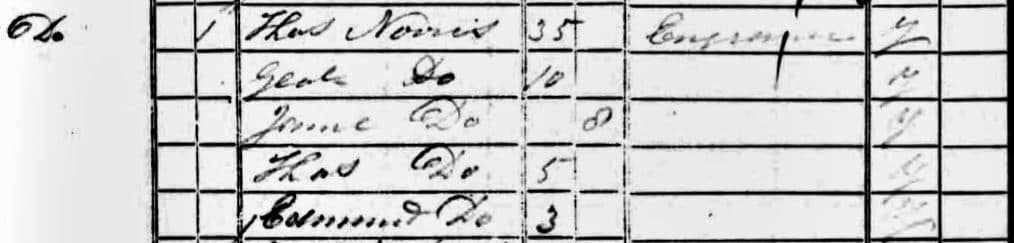 Do 1 Thos Norris 35 Engraver y
Geo Do 10 y
Jane Do 8 y
Thos Do 5 y
Edmund Do 3 y